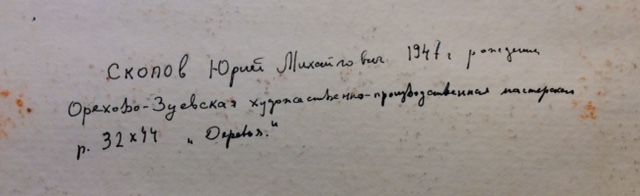 Скопов Юрий Михайлович 1947 г. рождения
Орехово-Зуевская художественно-производственная мастерская
р. 32х44 „Деревья."